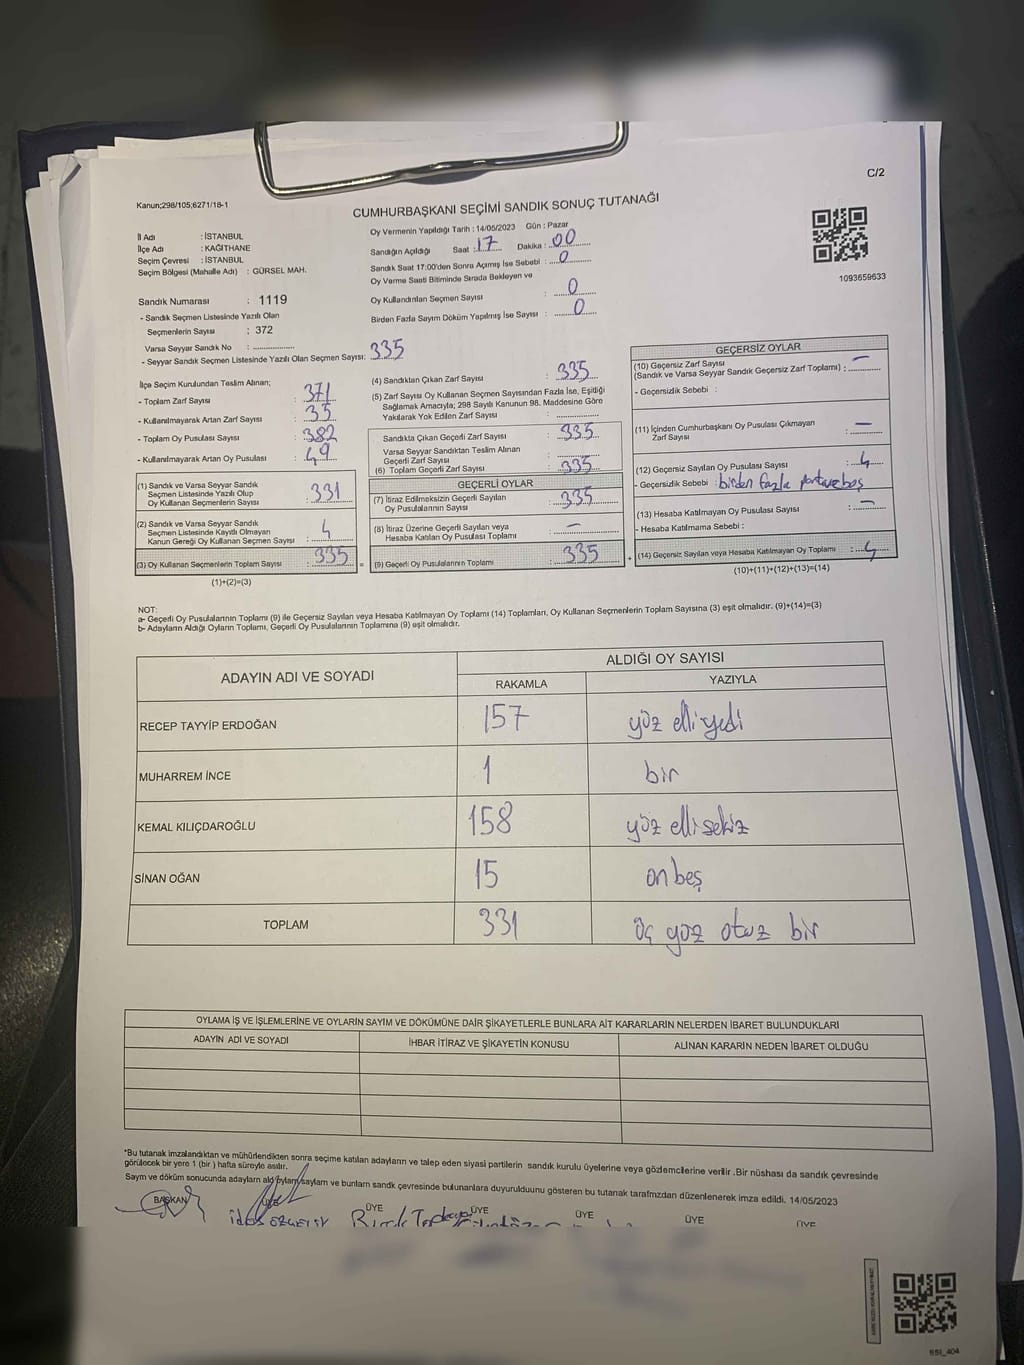 C/2
Kanun;298/105;6271/16-1
CUMHURBAŞKANI SEÇİMİ SANDIK SONUÇ TUTANAĞI
İl Adı : İSTANBUL
İlçe Adı : KAĞITHANE
Seçim Çevresi : İSTANBUL
Seçim Bölgesi (Mahalle Adı) : GÜRSEL MAH.
Sandık Numarası : 1119
- Sandık Seçmen Listesinde Yazılı Olan
Seçmenlerin Sayısı : 372
Varsa Seyyar Sandık No :
- Seyyar Sandık Seçmen Listesinde Yazılı Olan Seçmen Sayısı: 335
Oy Vermenin Yapıldığı Tarih : 14/05/2023 Gün : Pazar
Sandığın Açıldığı Saat : 17 Dakika : 00
Sandık Saat 17:00'den Sonra Açmış İse Sebebi : 0
Oy Verme Saati Bitiminde Sırada Bekleyen ve
Oy Kullandırılan Seçmen Sayısı : 0
Birden Fazla Sayım Döküm Yapılmış İse Sayısı : 0
1093659633
İlçe Seçim Kurulundan Teslim Alınan;
- Toplam Zarf Sayısı : 371
- Kullanılmayarak Artan Zarf Sayısı : 35
- Toplam Oy Pusulası Sayısı : 382
- Kullanılmayarak Artan Oy Pusulası : 49
(1) Sandık ve Varsa Seyyar Sandık
Seçmen Listesinde Yazılı Olup
Oy Kullanan Seçmenlerin Sayısı : 331
(2) Sandık ve Varsa Seyyar Sandık
Seçmen Listesinde Kayıtlı Olmayan
Kanun Gereği Oy Kullanan Seçmen Sayısı : 4
(3) Oy Kullanan Seçmenlerin Toplam Sayısı : 335
(1)+(2)=(3)
(4) Sandıktan Çıkan Zarf Sayısı : 335
(5) Zarf Sayısı Oy Kullanan Seçmen Sayısından Fazla İse, Eşitliği
Sağlamak Amacıyla; 298 Sayılı Kanunun 98. Maddesine Göre
Yakılarak Yok Edilen Zarf Sayısı :
Sandıkta Çıkan Geçerli Zarf Sayısı : 335
Varsa Seyyar Sandıktan Teslim Alınan
Geçerli Zarf Sayısı :
(6) Toplam Geçerli Zarf Sayısı : 335
GEÇERLİ OYLAR
(7) İtiraz Edilmeksizin Geçerli Sayılan
Oy Pusulasının Sayısı : 335
(8) İtiraz Üzerine Geçerli Sayılan veya
Hesaba Katılan Oy Pusulası Toplamı : –
(9) Geçerli Oy Pusulalarının Toplamı : 335
GEÇERSİZ OYLAR
(10) Geçersiz Zarf Sayısı
(Sandık ve Varsa Seyyar Sandık Geçersiz Zarf Toplamı) : –
- Geçersizlik Sebebi :
(11) İçinden Cumhurbaşkanı Oy Pusulası Çıkmayan
Zarf Sayısı : –
(12) Geçersiz Sayılan Oy Pusulası Sayısı : 4
- Geçersizlik Sebebi : birden fazla boş
(13) Hesaba Katılmayan Oy Pusulası Sayısı : –
- Hesaba Katılmama Sebebi :
(14) Geçersiz Sayılan veya Hesaba Katılmayan Oy Toplamı : 4
(10)+(11)+(12)+(13)=(14)
NOT:
a- Geçerli Oy Pusulalarının Toplamı (9) ile Geçersiz Sayılan veya Hesaba Katılmayan Oy Toplamı (14) Toplamları, Oy Kullanan Seçmenlerin Toplam Sayısına (3) eşit olmalıdır. (9)+(14)=(3)
b- Adayların Aldığı Oyların Toplamı, Geçerli Oy Pusulalarının Toplamına (9) eşit olmalıdır.
ADAYIN ADI VE SOYADI
ALDIĞI OY SAYISI
RAKAMLA YAZIYLA
RECEP TAYYİP ERDOĞAN 157 yüz elli yedi
MUHARREM İNCE 1 bir
KEMAL KILIÇDAROĞLU 158 yüz elli sekiz
SİNAN OĞAN 15 on beş
TOPLAM 331 üç yüz otuz bir
OYLAMA İŞ VE İŞLEMLERİNE VE OYLARIN SAYIM VE DÖKÜMÜNE DAİR ŞİKAYETLERLE BUNLARA AİT KARARLARIN NELERDEN İBARET BULUNDUKLARI
ADAYIN ADI VE SOYADI İHBAR İTİRAZ VE ŞİKAYETİN KONUSU ALINAN KARARIN NEDEN İBARET OLDUĞU
*Bu tutanak imzalandıktan ve mühürlendikten sonra seçime katılan adayların ve talep eden siyasi partilerin sandık kurulu üyelerine veya gözlemcilerine verilir .Bir nüshası da sandık çevresinde
görülecek bir yere 1 (bir ) hafta süreyle asılır.
Sayım ve döküm sonucunda adayların aldığı oyların sayıları ve bunların sandık çevresinde bulunanlara duyurulduğunu gösteren bu tutanak tarafımızdan düzenlenerek imza edildi. 14/05/2023
BAŞKAN ÜYE ÜYE ÜYE ÜYE ÜYE ÜYE